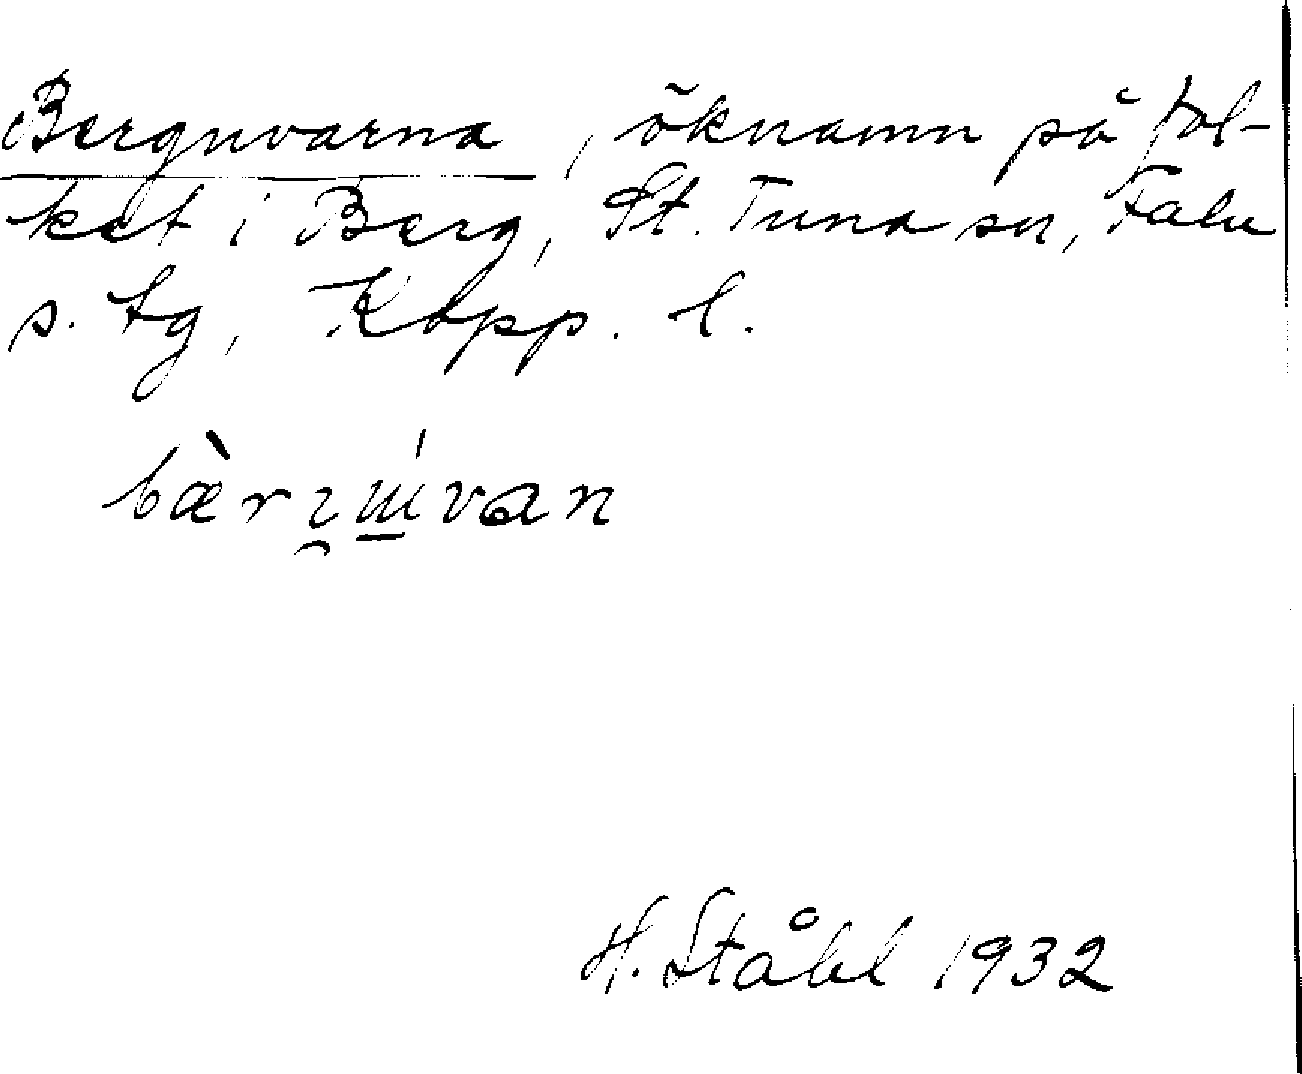 Berguvarna, öknamn på fol-
ket i Berg, St. Tuna sn, Falu
s. tg, Kopp. l.
H. Ståhl 1932